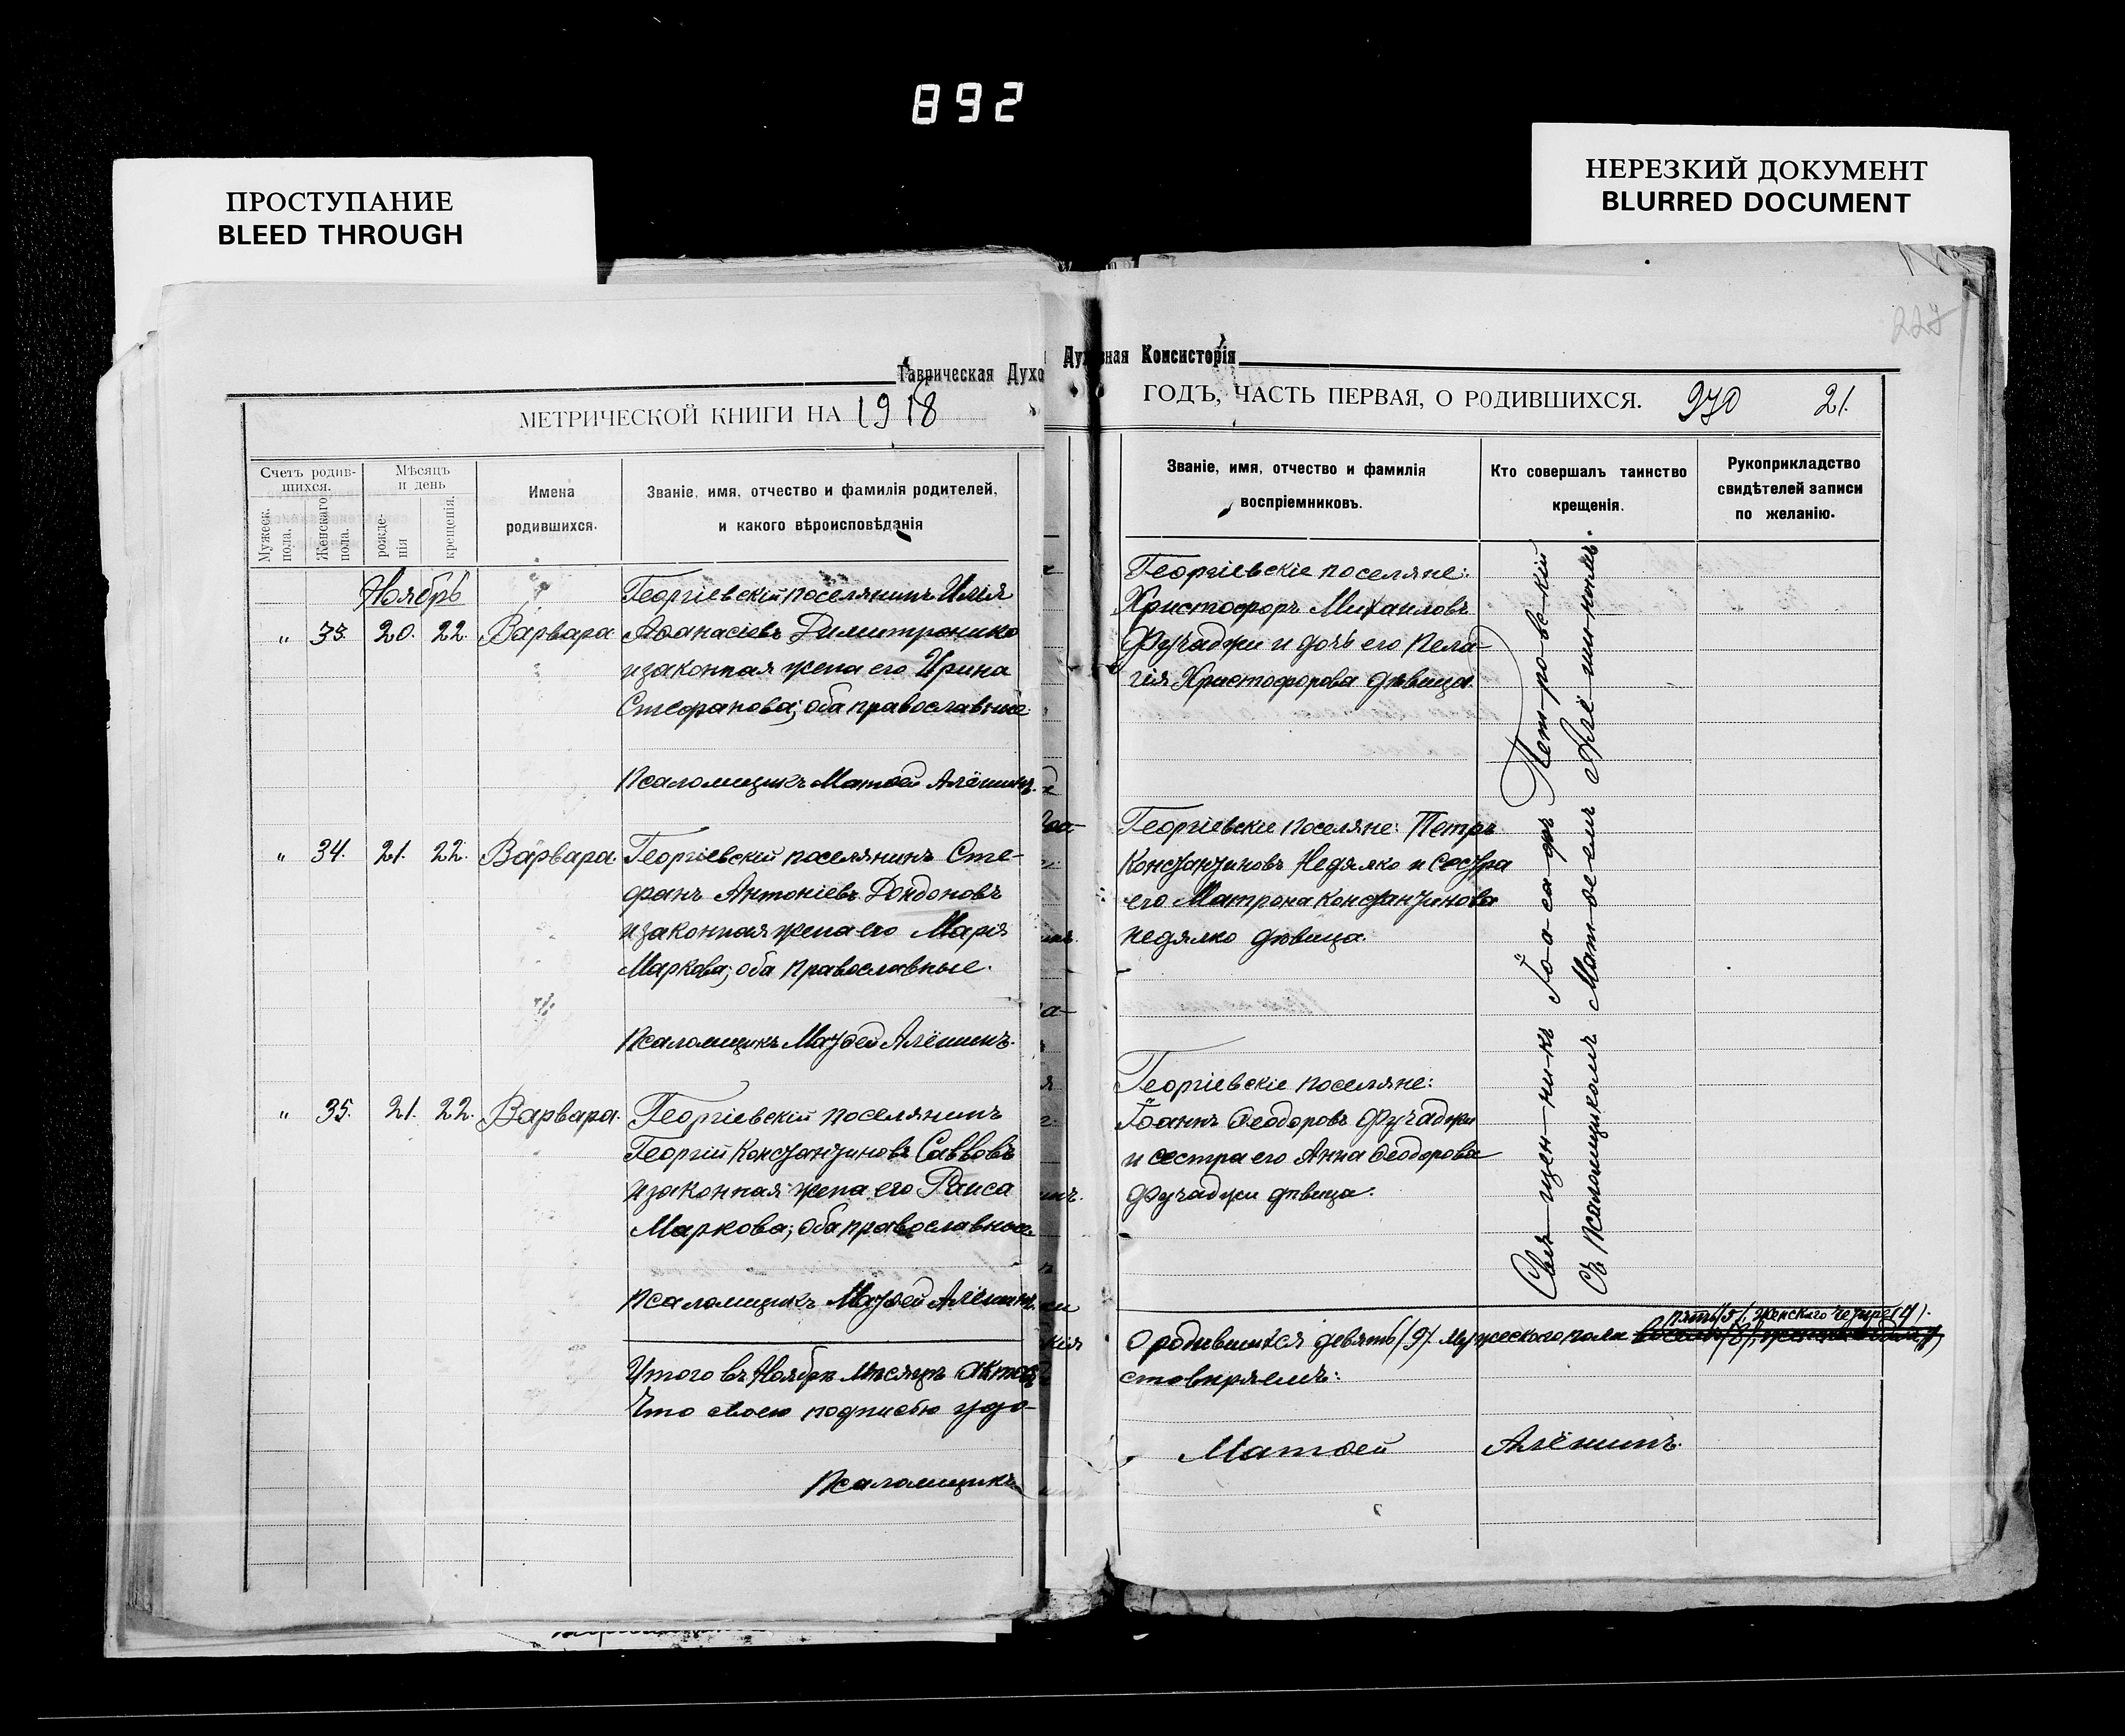 892
ПРОСТУПАНИЕ
BLEED THROUGH
НЕРЕЗКИЙ ДОКУМЕНТ
BLURRED DOCUMENT
Таврическая Духо
МЕТРИЧЕСКОЙ КНИГИ НА 1918
Счетъ родив-
шихся.
Мужеск. пола.
Женскаго пола.
Мѣсяцъ
и день
рожде-
нія
крещенія.
Имена
родившихся.
Званіе, имя, отчество и фамилія родителей,
и какого вѣроисповѣданія
Ноябрь
Георгіевскій поселянинъ Илія
" 33. 20. 22. Варвара Аѳанасіевъ Димитронико
и законная жена его Ирина
Стефанова; оба православные.
Псаломщикъ Матѳей Алёшинъ.
" 34. 21. 22. Варвара. Георгіевскій поселянинъ Сте-
фанъ Антоніевъ Дондоновъ
и законная жена его Марія
Маркова; оба православные.
Псаломщикъ Матѳей Алёшинъ.
" 35. 21. 22. Варвара. Георгіевскій поселянинъ
Георгій Константиновъ Саввовъ
и законная жена его Раиса
Маркова; оба православные.
Псаломщикъ Матѳей Алёшинъ
Итого въ Ноябрѣ мѣсяцѣ актовъ
Что своею подписью удо-
Псаломщикъ
Духовная Консисторія
227
ГОДЪ, ЧАСТЬ ПЕРВАЯ, О РОДИВШИХСЯ. 970 21.
Званіе, имя, отчество и фамилія
воспріемниковъ.
Кто совершалъ таинство
крещенія.
Рукоприкладство
свидѣтелей записи
по желанію.
Георгіевскіе поселяне:
Христофоръ Михаиловъ
Фучаджи и дочь его Пела-
гія Христофорова дѣвица.
Георгіевскіе поселяне: Петръ
Константиновъ Недялко и сестра
его Матрона Константинова
Недялко дѣвица.
Георгіевскіе поселяне:
Іоаннъ Ѳеодоровъ Фучаджи
и сестра его Анна Ѳеодорова
Фучаджи дѣвица.
Свя-щен-ни-къ Іо-а-са-фъ Пет-ро-вс-кій
Съ псаломщикомъ Матѳеемъ Алё-ши-нымъ.
пять/5/, женскаго четыре(4).
О родившихся девять/9/ мужескаго пола
стовѣряемъ:
Матѳей Алёшинъ.